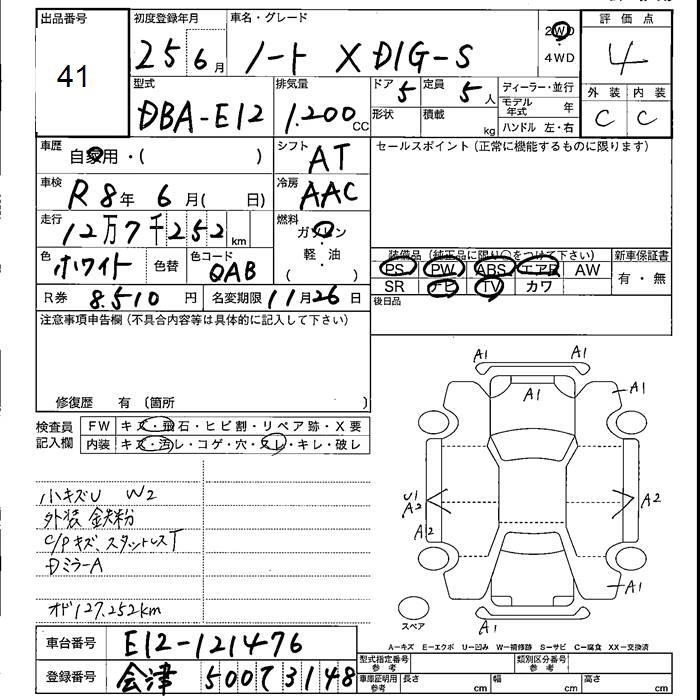 出品番号 初度登録年月 車名・グレード 評価点
41 25 6月 ノート X DIG-S 2WD 4WD 4
型式 排気量 ドア 5 定員 5人 ディーラー・並行
DBA-E12 1.200CC モデル年式 年 外装 内装
形状 積載 kg ハンドル 左・右 C C
車歴 自家用・( ) シフト AT セールスポイント(正常に機能するものに限ります)
車検 R8年 6月( 日) 冷房 AAC
走行 12万7千252km 燃料 ガソリン・軽油 ( )
色 ホワイト 色替 色コード QAB 装備品(純正品に限り○をつけて下さい) 新車保証書
PS PW ABS エアB AW 有・無
R券 8.510円 名変期限 11月26日 SR ナビ TV カワ
後日品
注意事項申告欄(不具合内容等は具体的に記入して下さい)
修復歴 有 〔箇所 〕
検査員記入欄 FW キズ・飛石・ヒビ割・リペア跡・X要
内装 キズ・汚レ・コゲ・穴・スレ・キレ・破レ
小キズU W2
外装 鉄粉
C/Pキズ、スタットレスT
DミラーA
オド127.252km
A1 A1
A1 A1
U1
A2 A2
A2
A1
A1
スペア
A-キズ E-エクボ U-凹み W-補修跡 S-サビ C-腐食 XX-交換済
車台番号 E12-121476
型式指定番号 参考 類別区分番号 参考
登録番号 会津 500 73148
車庫証明用 参考 長さ cm 幅 cm 高さ cm